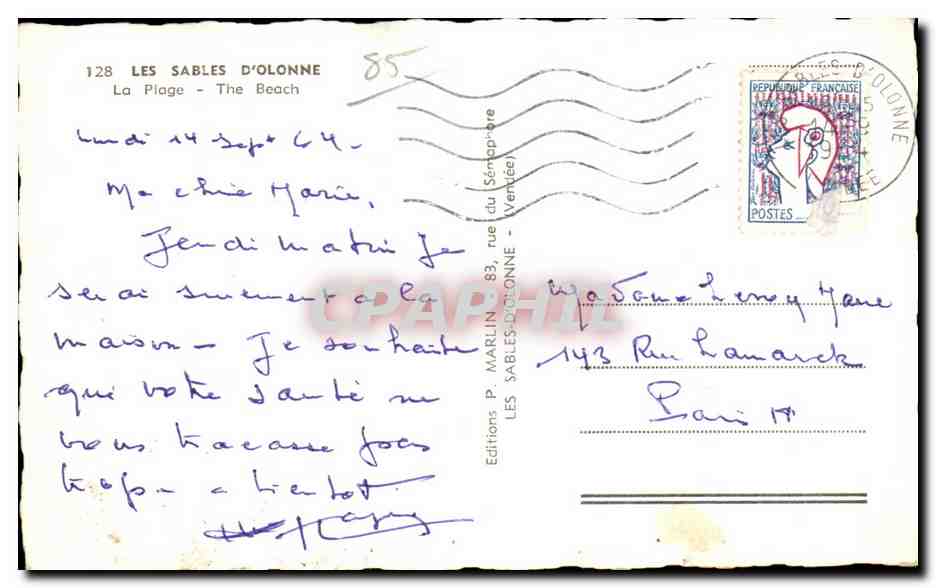 128 LES SABLES D'OLONNE
La Plage - The Beach
85
Lundi 14 Sept 64-
Ma chère Marie,
Jeudi matin Je
serai surement à la
maison - Je souhaite
que votre santé ne
vous tracasse pas
trop - a bientot
Editions P. MARLIN - 83, rue du Sémaphore
LES SABLES-D'OLONNE - (Vendée)
SABLES D'OLONNE
REPUBLIQUE FRANÇAISE
POSTES
CPAPHIL
Madame Leroy Marie
143 Rue Lamarck
Paris